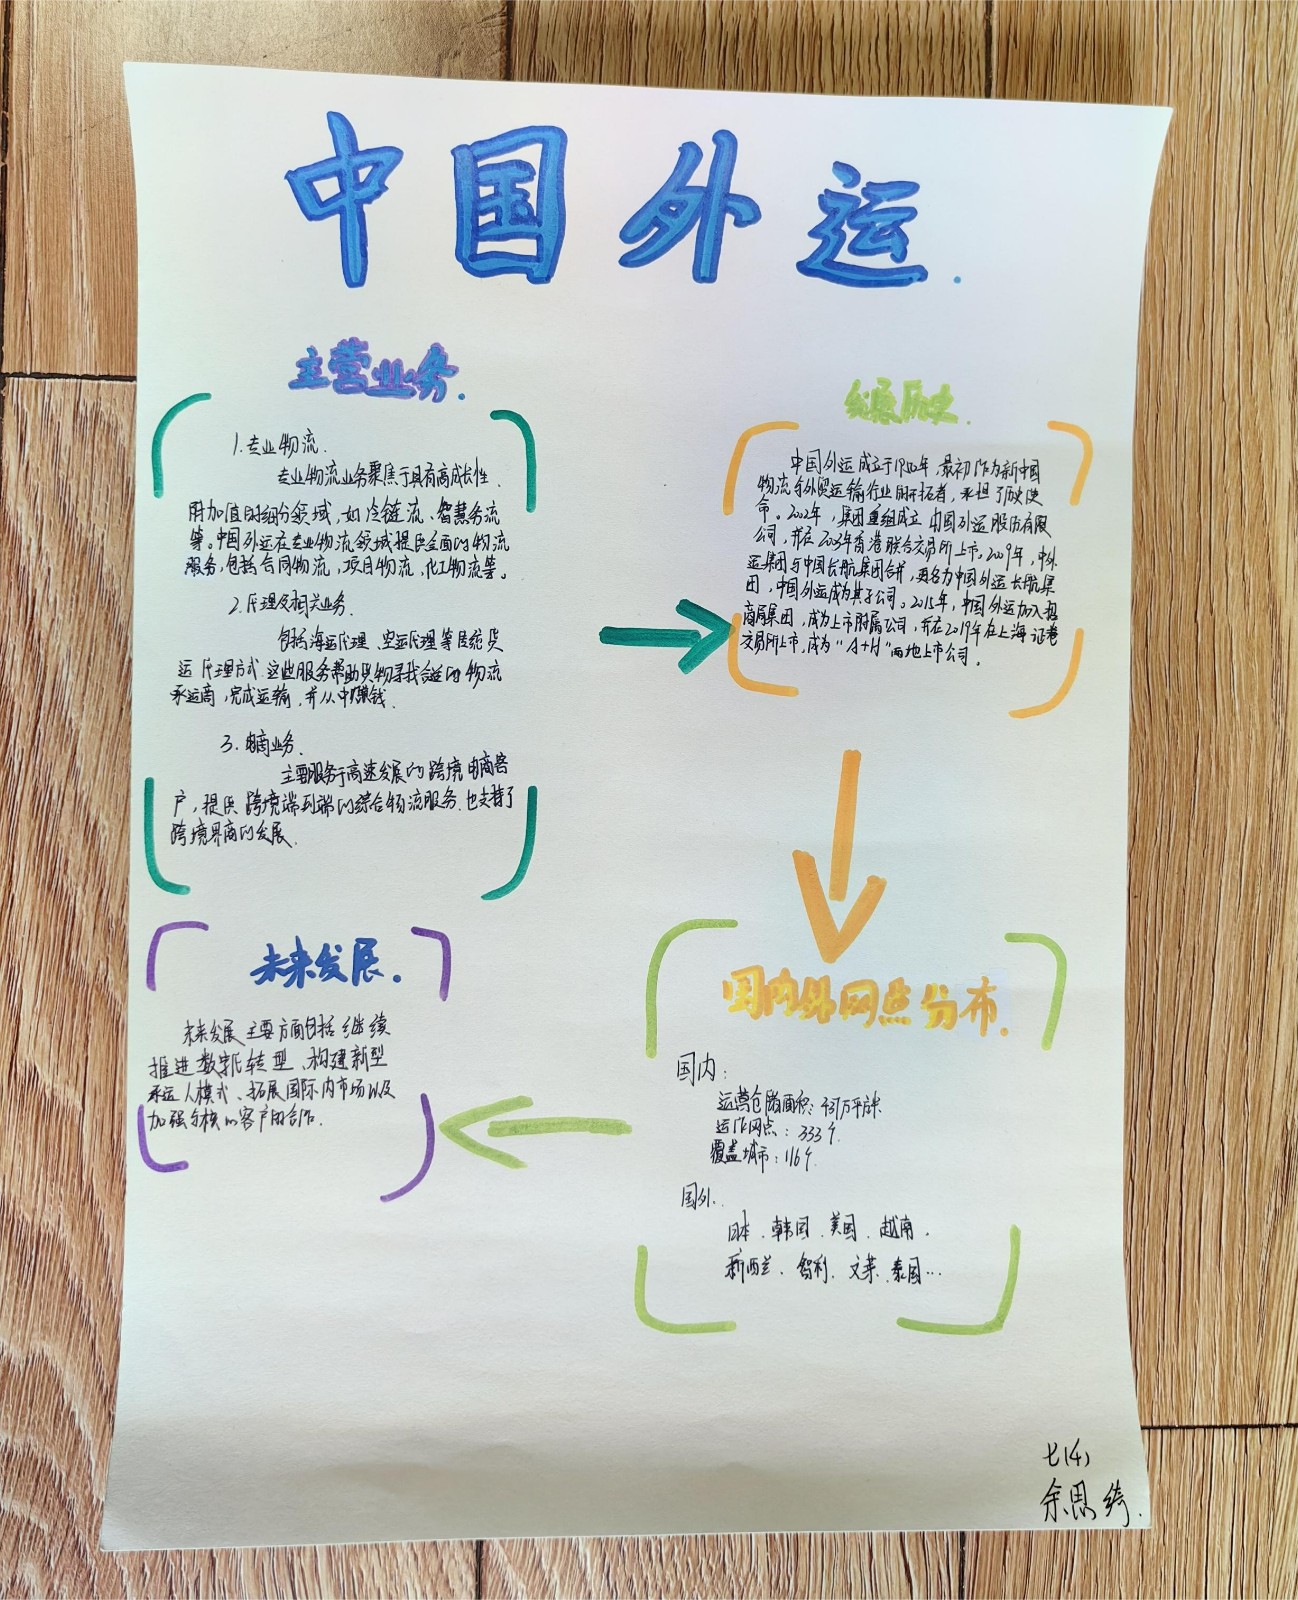 中国外运.
主营业务.
1.专业物流.
专业物流业务聚焦于具有高成长性.
附加值的细分领域,如冷链流、智慧务流
等。中国外运在专业物流领域提供全面的物流
服务,包括合同物流,项目物流,化工物流等。
2.代理及相关业务.
包括海运代理、空运代理等传统货
运代理方式.这些服务帮助货物寻找合适的物流
承运商,完成运输,并从中赚钱.
3.电商业务.
主要服务于高速发展的跨境电商客
户,提供跨境端到端的综合物流服务.也支持了
跨境界商的发展.
发展历史.
中国外运成立于1950年,最初作为新中国
物流与外贸运输行业的开拓者,承担了历史使
命。2002年,集团重组成立中国外运股份有限
公司,并在2003年香港联合交易所上市。2009年,中外
运集团与中国长航集团合并,更名为中国外运长航集
团,中国外运成为其子公司。2015年,中国外运加入招
商局集团,成为上市附属公司,并在2019年在上海证卷
交易所上市,成为“A+H”两地上市公司。
国内外网点分布.
国内:
运营仓储面积:431万平方米
运作网点:333个.
覆盖城市:116个.
国外.
日本、韩国、美国、越南.
新西兰、智利、文莱、泰国...
未来发展.
未来发展主要方面包括继续
推进数字化转型、构建新型
承运人模式、拓展国际内市场以及
加强与核心客户的合作.
七(4)
余思绮.